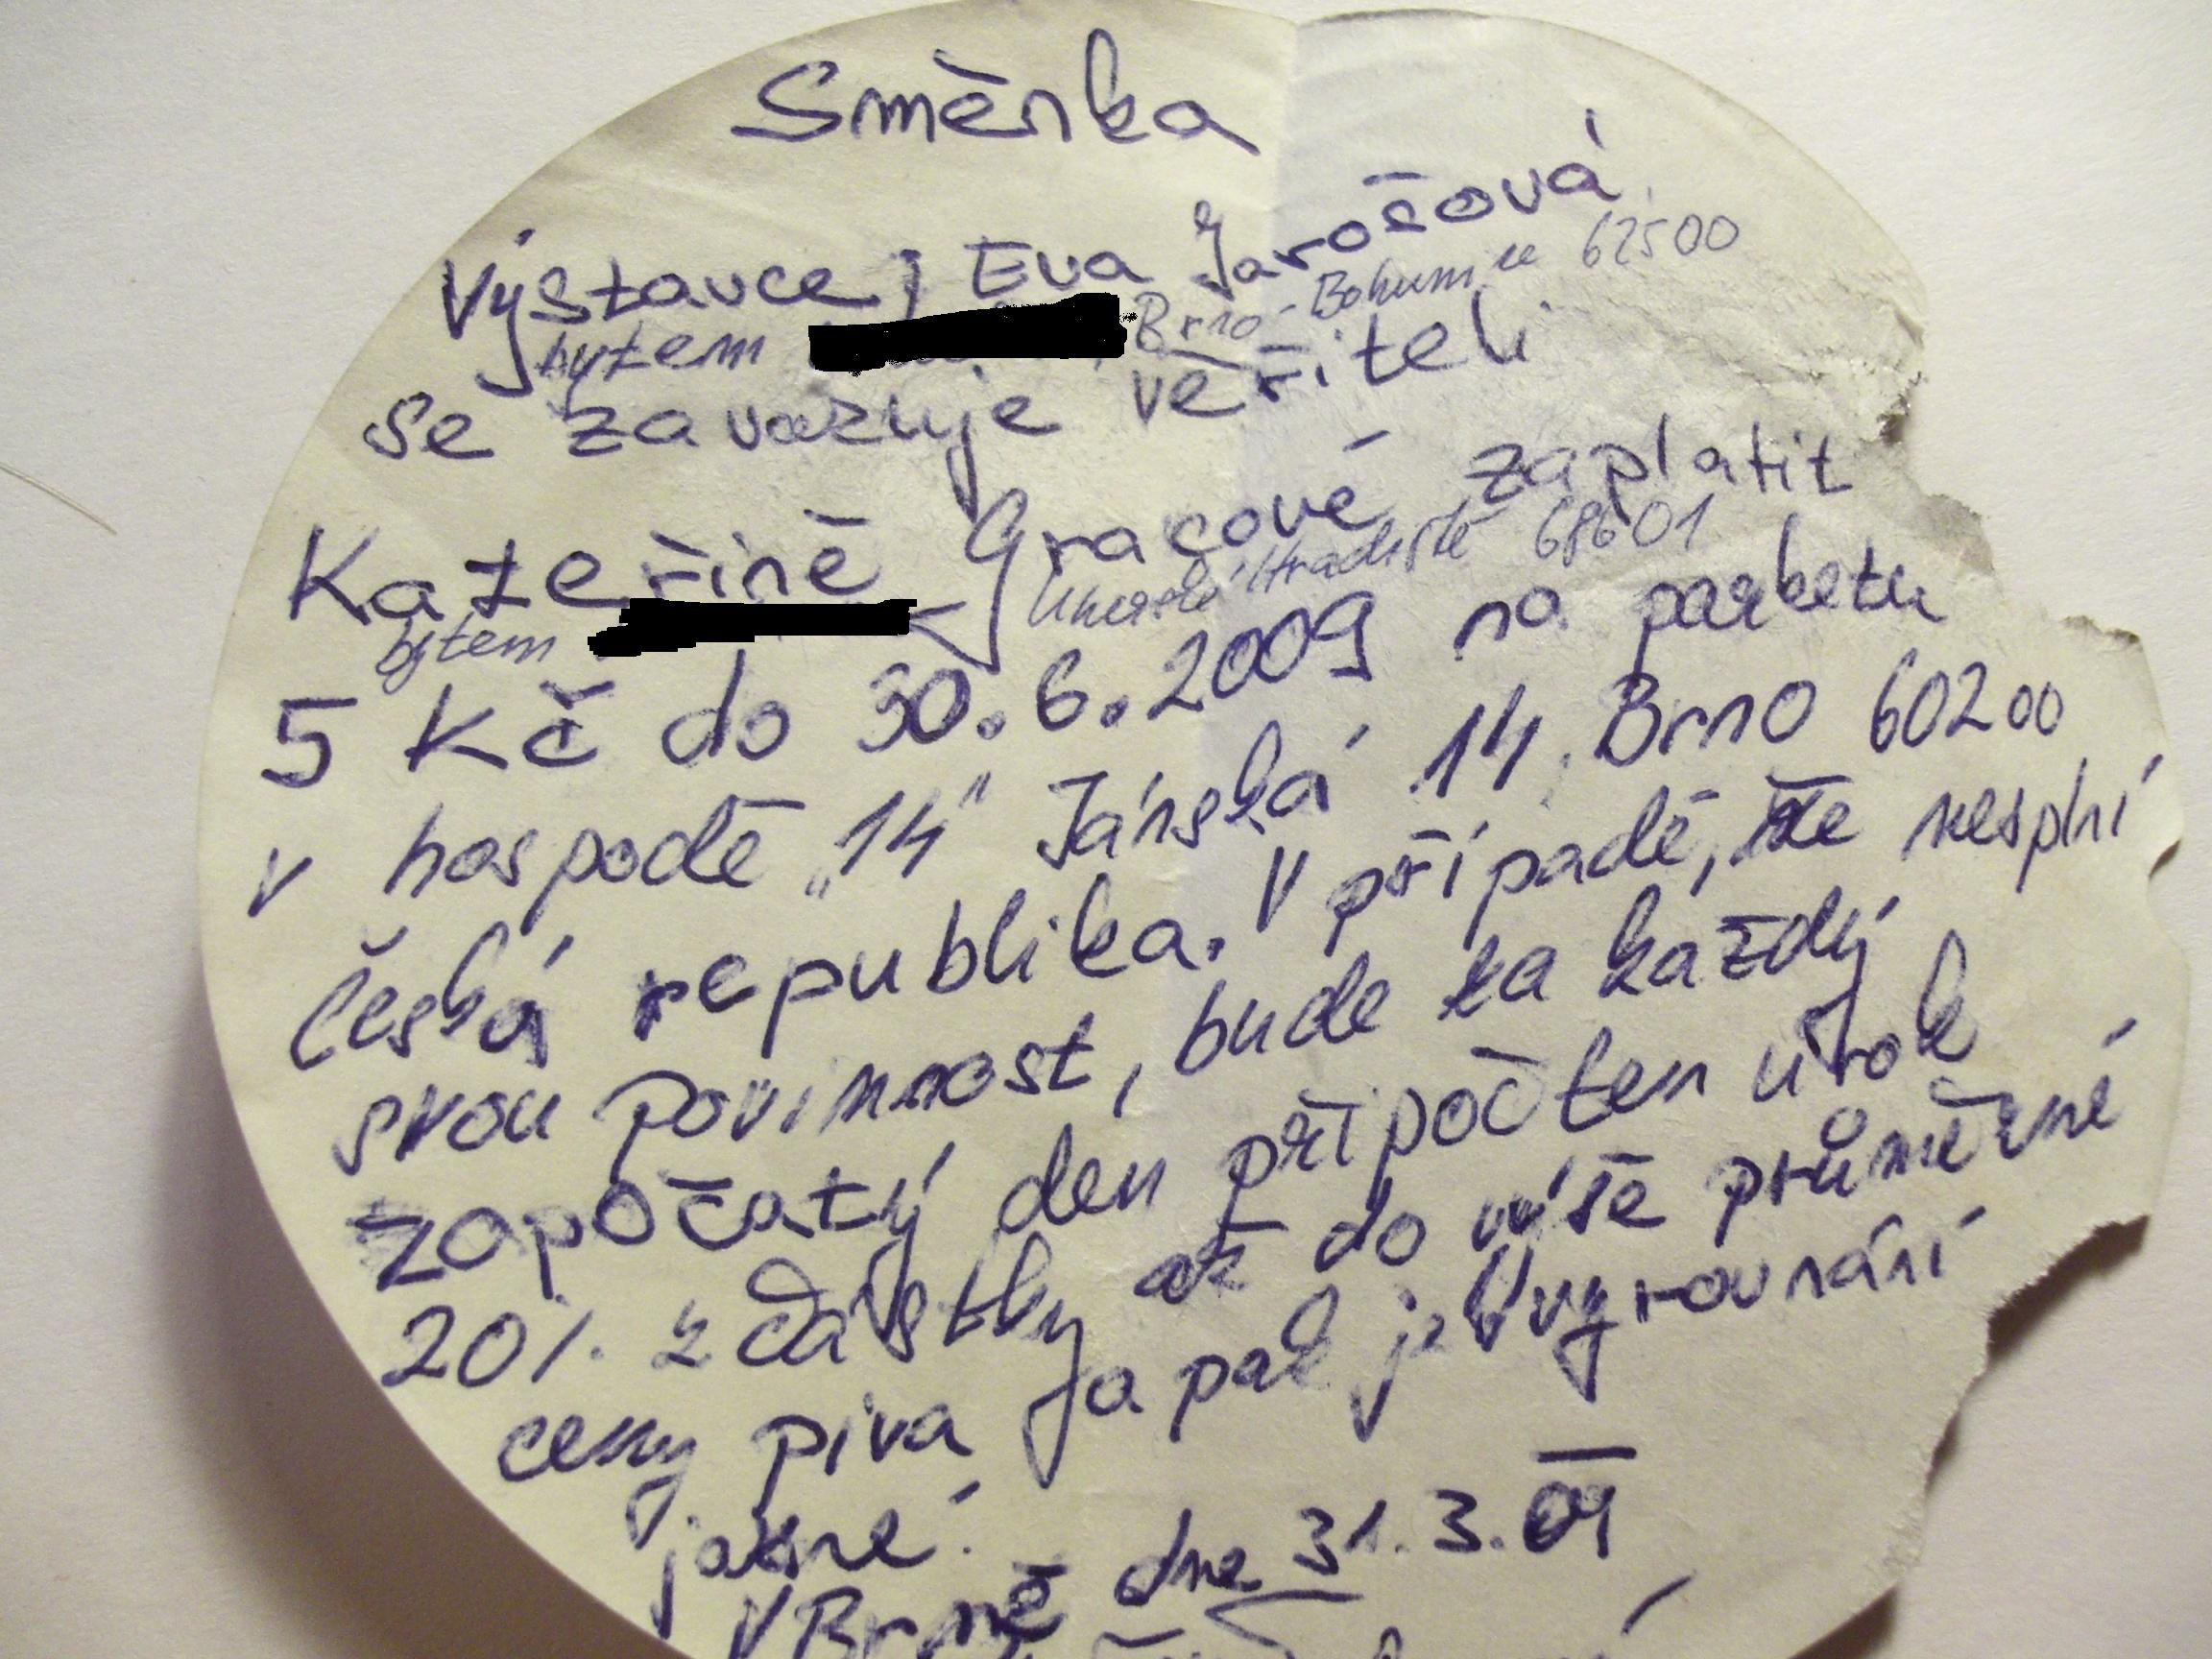 Směnka
Výstavce, Eva Jarošová
bytem Brno-Bohunice 62500
se zavazuje věřiteli
Kateřině Gracové zaplatit
bytem Uherské Hradiště 68601
5 Kč do 30.6.2009 na parketu
v hospodě „14" Jánská 14, Brno 60200
Česká republika. V případě, že nesplní
svou povinnost, bude za každý
započatý den připočten úrok
20% z částky až do výše průměrné
ceny piva a pak je vyrovnání
jasné.
V Brně dne 31.3.09